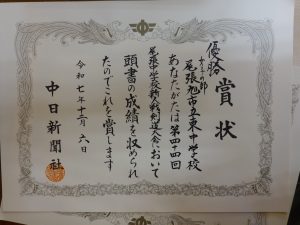 賞状
優勝
女子の部
尾張旭市立東中学校
あなたがたは第四十四回
尾張中学校新人戦剣道大会において
頭書の成績を収められ
たのでこれを賞します
令和七年十二月六日
中日新聞社